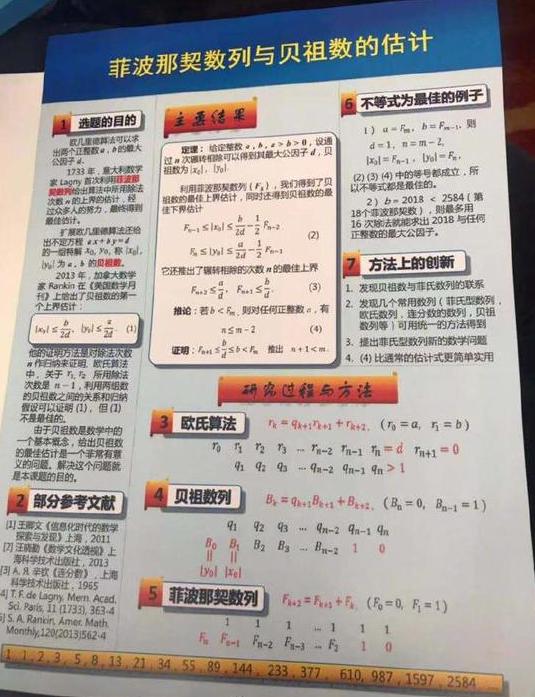 菲波那契数列与贝祖数的估计
1 选题的目的
欧几里德算法可以求
出两个正整数 a, b 的最大
公因子 d.
1733 年，意大利数学
家 Lagny 首次利用菲波那
契数列给出算法中所用除法
次数 n 的上界的估计，经
过众多人的努力，最终得到
最佳估计。
扩展欧几里德算法还给
出不定方程 ax+by=d
的一组特解 x₀, y₀, 称 |x₀|,
|y₀| 为 a, b 的贝祖数。
2013 年，加拿大数学
家 Rankin 在《美国数学月
刊》上给出了贝祖数的第一
个上界估计：
|x₀| ≤ b/2d, |y₀| ≤ a/2d. (1)
他的证明方法是对除法次数
n 作归纳来证明. 欧氏算法
中，关于 r₁, r₂ 所用除法
次数是 n−1，利用两组数
的贝祖数之间的关系和归纳
假设可以证明 (1)，但 (1)
不是最佳的。
由于贝祖数是数学中的
一个基本概念，给出贝祖数
的最佳估计是一个非常有意
义的问题。解决这个问题就
是本课题的目的。
2 部分参考文献
[1] 王卿文《信息化时代的数学
探索与发现》上海，2011
[2] 汪晓勤《数学文化透视》上
海科学技术出版社，2013
[3] A. Я. 辛钦《连分数》，上海
科学技术出版社，1965
[4] T. F. de Lagny, Mem. Acad.
Sci. Paris, 11 (1733), 363-4
[5] S. A. Rankin, Amer. Math.
Monthly,120(2013)562-4
主要结果
定理：给定整数 a, b, a > b > 0，设通
过 n 次辗转相除可以得到其最大公因子 d，贝
祖数为 |x₀|, |y₀|.
利用菲波那契数列 {Fₖ}，我们得到了贝
祖数的最佳上界估计，同时还得到贝祖数的最
佳下界估计
Fₙ₋₁ ≤ |x₀| ≤ b/2d − 1/2 Fₙ₋₂
(2)
Fₙ ≤ |y₀| ≤ a/2d − 1/2 Fₙ₋₁
它还推出了辗转相除的次数 n 的最佳上界
Fₙ₊₂ ≤ a/d, Fₙ₊₁ ≤ b/d. (3)
推论：若 b < Fₘ，则对任何正整数 a，有
n ≤ m − 2 (4)
证明：Fₙ₊₁ ≤ b/d ≤ b < Fₘ 推出 n + 1 < m.
6 不等式为最佳的例子
1) a = Fₘ, b = Fₘ₋₁, 则
d = 1, n = m − 2,
|x₀| = Fₙ₋₁, |y₀| = Fₙ,
(2) (3) (4) 中的等号都成立，所
以不等式都是最佳的。
2) b = 2018 < 2584 (第
18个菲波那契数)，则最多用
16 次除法就能求出 2018 与任何
正整数的最大公因子。
7 方法上的创新
1. 发现贝祖数与菲氏数列的联系
2. 发现几个常用数列 (菲氏型数列，
欧氏数列，连分数的数列，贝祖
数列等) 可用统一的方法得到
3. 提出菲氏型数列新的数学问题
4. (4) 比通常的估计式更简单实用
研究过程与方法
3 欧氏算法 rₖ = qₖ₊₁rₖ₊₁ + rₖ₊₂, (r₀ = a, r₁ = b)
r₀ r₁ r₂ r₃ ... rₙ₋₂ rₙ₋₁ rₙ = d rₙ₊₁ = 0
q₁ q₂ q₃ ... qₙ₋₂ qₙ₋₁ qₙ > 1
4 贝祖数列 Bₖ = qₖ₊₁Bₖ₊₁ + Bₖ₊₂, (Bₙ = 0, Bₙ₋₁ = 1)
q₁ q₂ q₃ ... qₙ₋₂ qₙ₋₁ qₙ
B₀ B₁ B₂ B₃ ... Bₙ₋₂ 1 0
|| ||
|y₀| |x₀|
5 菲波那契数列 Fₖ₊₂ = Fₖ₊₁ + Fₖ, (F₀ = 0, F₁ = 1)
1 1 1 ... 1 1 1
Fₙ Fₙ₋₁ Fₙ₋₂ Fₙ₋₃ ... F₂ 1 0
1, 1, 2, 3, 5, 8, 13, 21, 34, 55, 89, 144, 233, 377, 610, 987, 1597, 2584